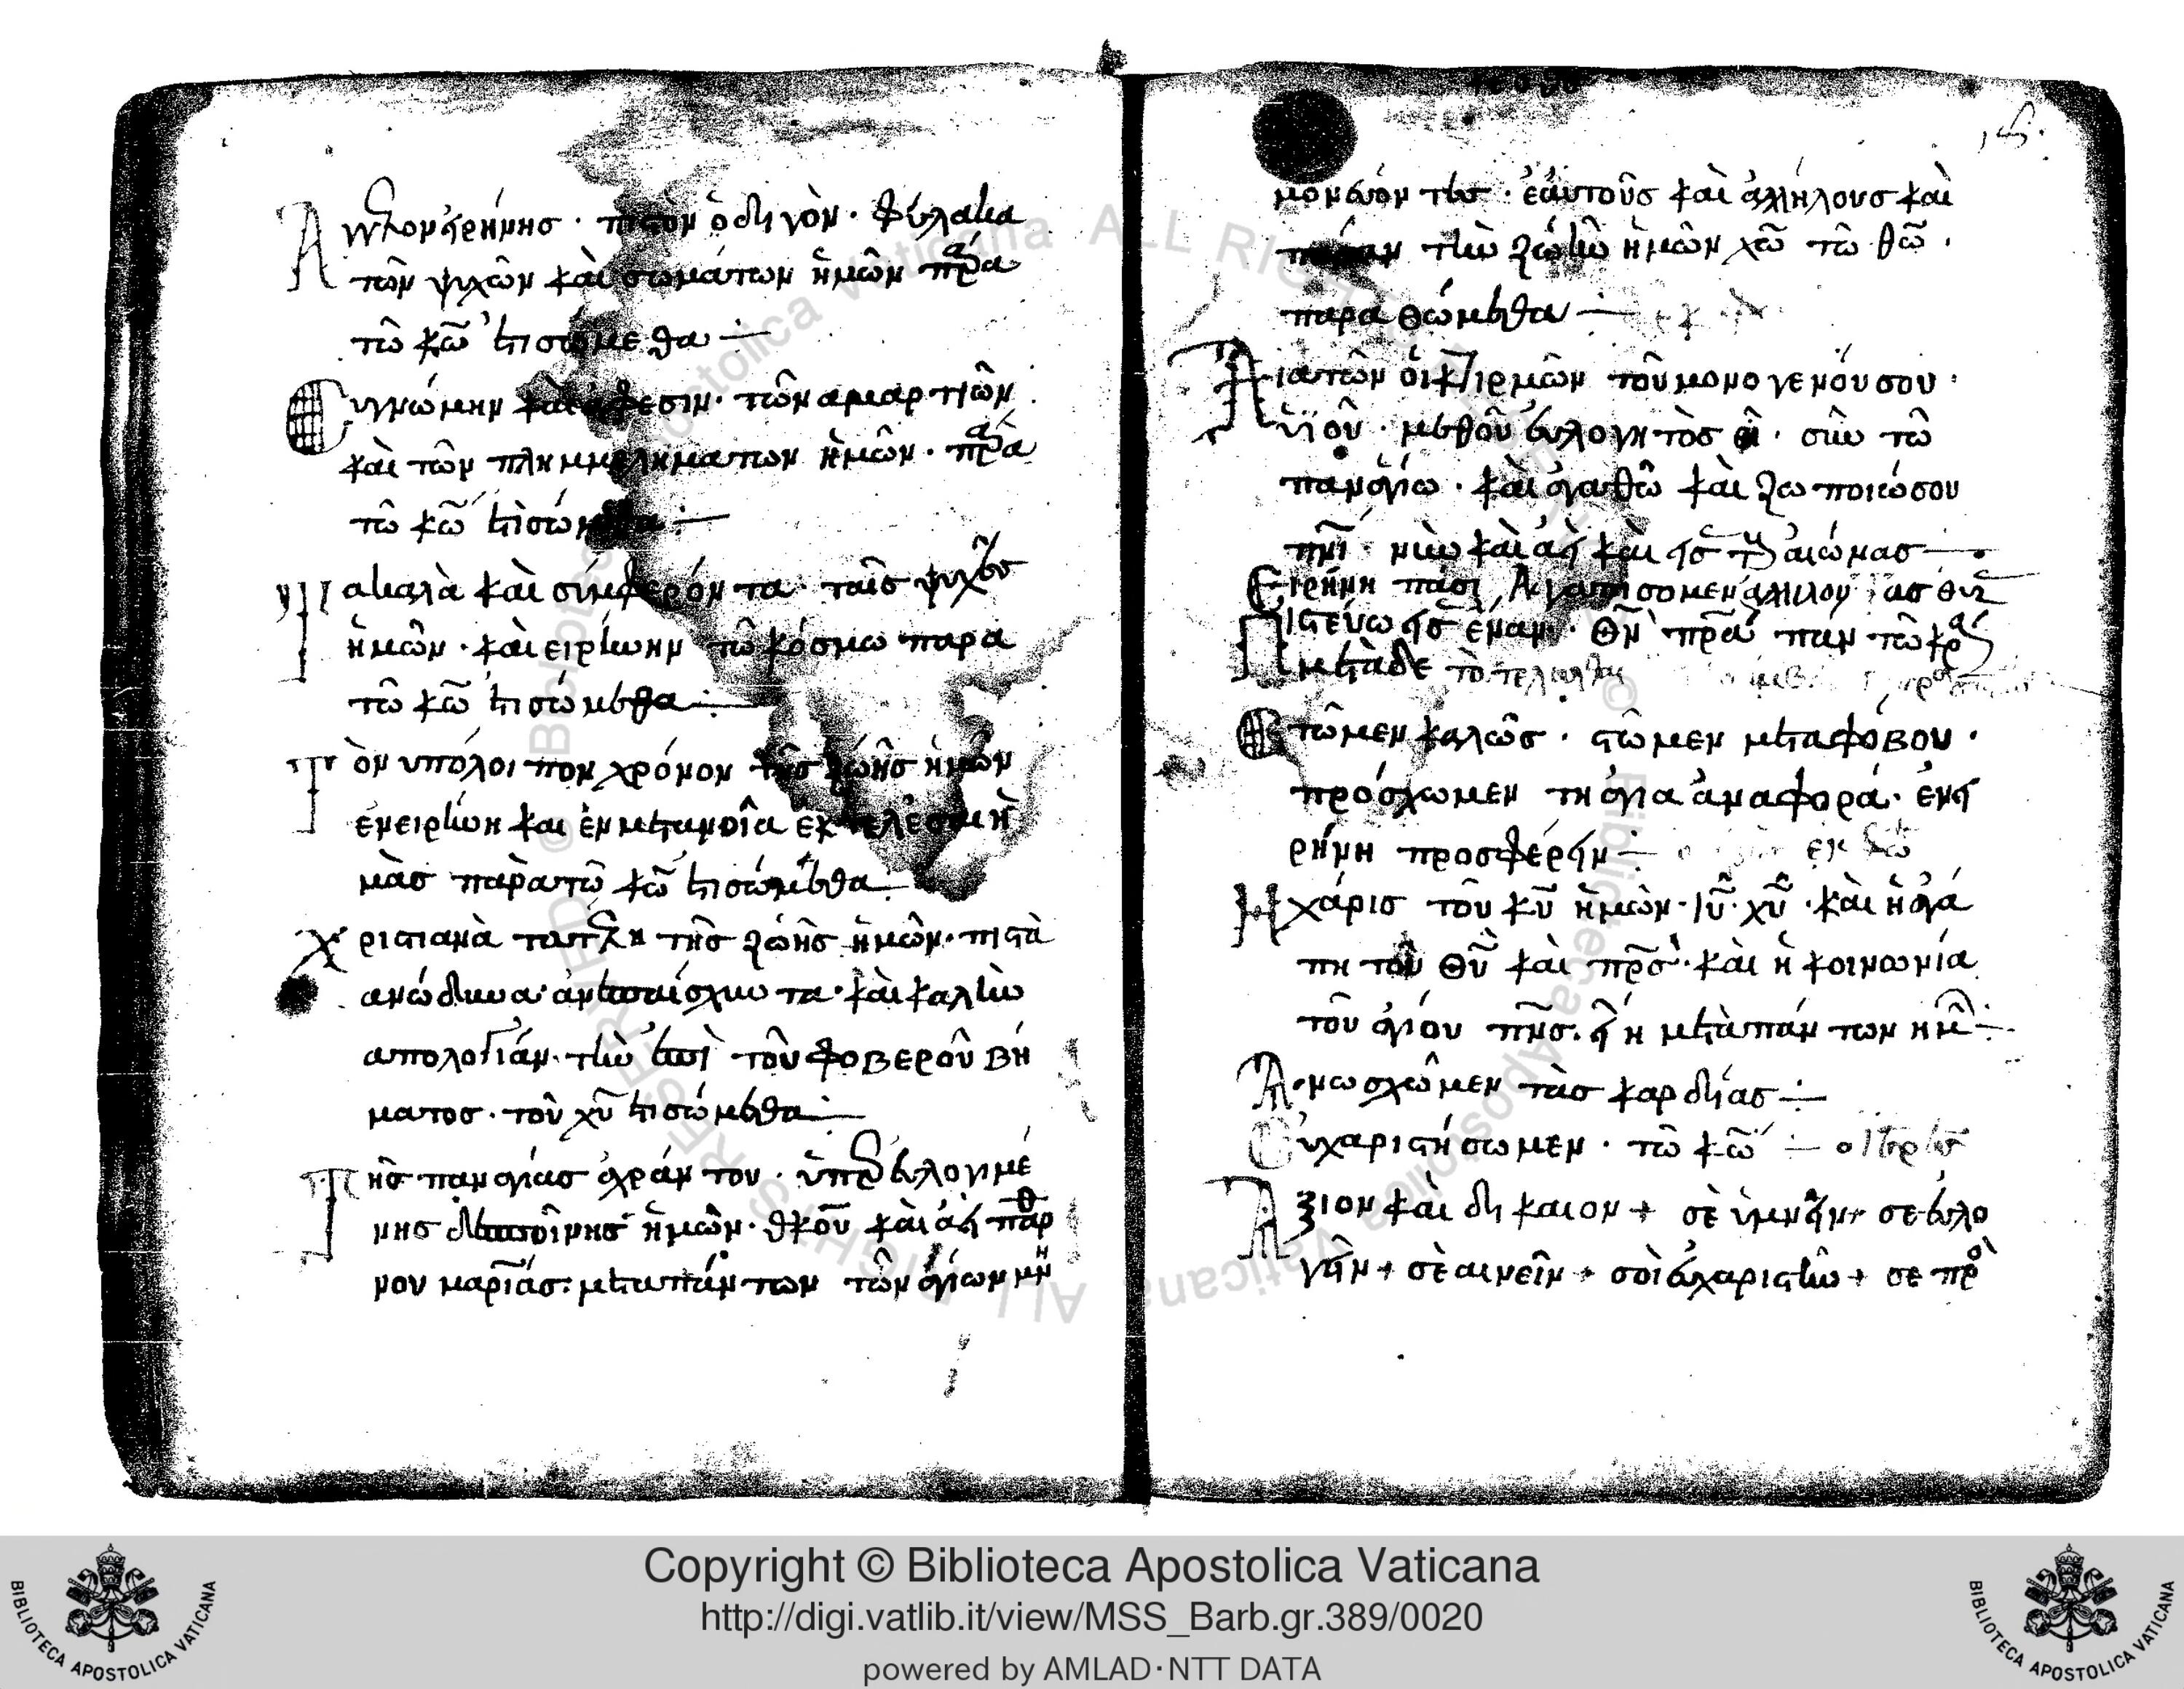 Ἄγγελον εἰρήνης · πιστὸν ὁδηγὸν · φύλακα
τῶν ψυχῶν καὶ σωμάτων ἡμῶν πρὰ
τῶ κω̅ ἐτισόμεθα
Συγνώμην καὶ ἄφεσιν · τῶν αμαρτιῶν
καὶ τῶν πλημμελημάτων ἡμῶν · πρὰ
τῶ κω̅ ἐτισόμεθα
Τὰ καλὰ καὶ σύμφερόντα ταῖς ψυχαῖς
ἡμῶν · καὶ ειρίνην τῶ κόσμω παρα
τῶ κω̅ ἐτισόμεθα
Τὸν υπόλοιπον χρόνον τῆς ζωῆς ἡμῶν
ἐν ειρίνη και ἐν μετανοῖα ἐκτελέσαι ἡ
μὰς παρὰ τῶ κω̅ ἐτισώμεθα
Χριστιανὰ τα τέλη τῆς ζωῆς ἡμῶν · πιστὰ
ανώδινα · ἀνεπαίσχυντα · καὶ καλὴν
απολογίαν · τὴν ἐπὶ τοῦ φοβεροῦ βή
ματος · τοῦ χυ̅ ἐτισώμεθα
Τῆς παναγίας ἀχράντου · ὑπερευλογιμέ
νης δεσποίνης ἡμῶν · θκοῦ καὶ ἀεὶ παρθ
νου μαρίας · μετα πάντων τῶν ἁγίων μν
μονεύσαντες · ἑαυτοῦς καὶ ἀλλήλους καὶ
πᾶσαν τὴν ζωὴν ἡμῶν χω̅ τῶ θω̅ ·
παραθώμεθα
Διὰ τῶν οἰκτιρμῶν τοῦ μονογενοῦ σου ·
ὑϊοῦ · μεθοῦ ευλογητὸς εἶ · σὺν τῶ
παναγίω · καὶ αγαθῶ καὶ ζωοποιῶ σου
πνι̅ · νῦν καὶ ἀεὶ καὶ εἰς τοὺς αιώνας
Ειρήνη πάσι Αγαπίσομεν ἀλιλου
Πιστεύω εἰς ἕναν · Θν̅ πρ̅α παντωκρά
Στῶμεν καλῶς · στῶμεν μετα φόβου ·
πρόσχωμεν τη ἁγία ἀναφορά · ἐν εἰ
ρήνη προσφέρειν
Η χάρις τοῦ κυ̅ ἡμῶν · ιυ̅ · χυ̅ · καὶ ἡ ἀγά
πη τοῦ Θυ̅ καὶ πρ̅ς · καὶ ἡ κοινωνία
τοῦ ἁγίου πν̅ς · εἴη μετὰ πάντων ημ
Ἄνω σχῶμεν τὰς καρδίας
Ευχαριστήσωμεν · τῶ κω̅
Ἄξιον καὶ δίκαιον + σὲ ὑμνεῖν + σε ευλο
γεῖν + σὲ αινεῖν + σοὶ ευχαριστεῖν + σε προ
Copyright © Biblioteca Apostolica Vaticana
http://digi.vatlib.it/view/MSS_Barb.gr.389/0020
powered by AMLAD·NTT DATA
BIBLIOTECA APOSTOLICA VATICANA
BIBLIOTECA APOSTOLICA VATICANA